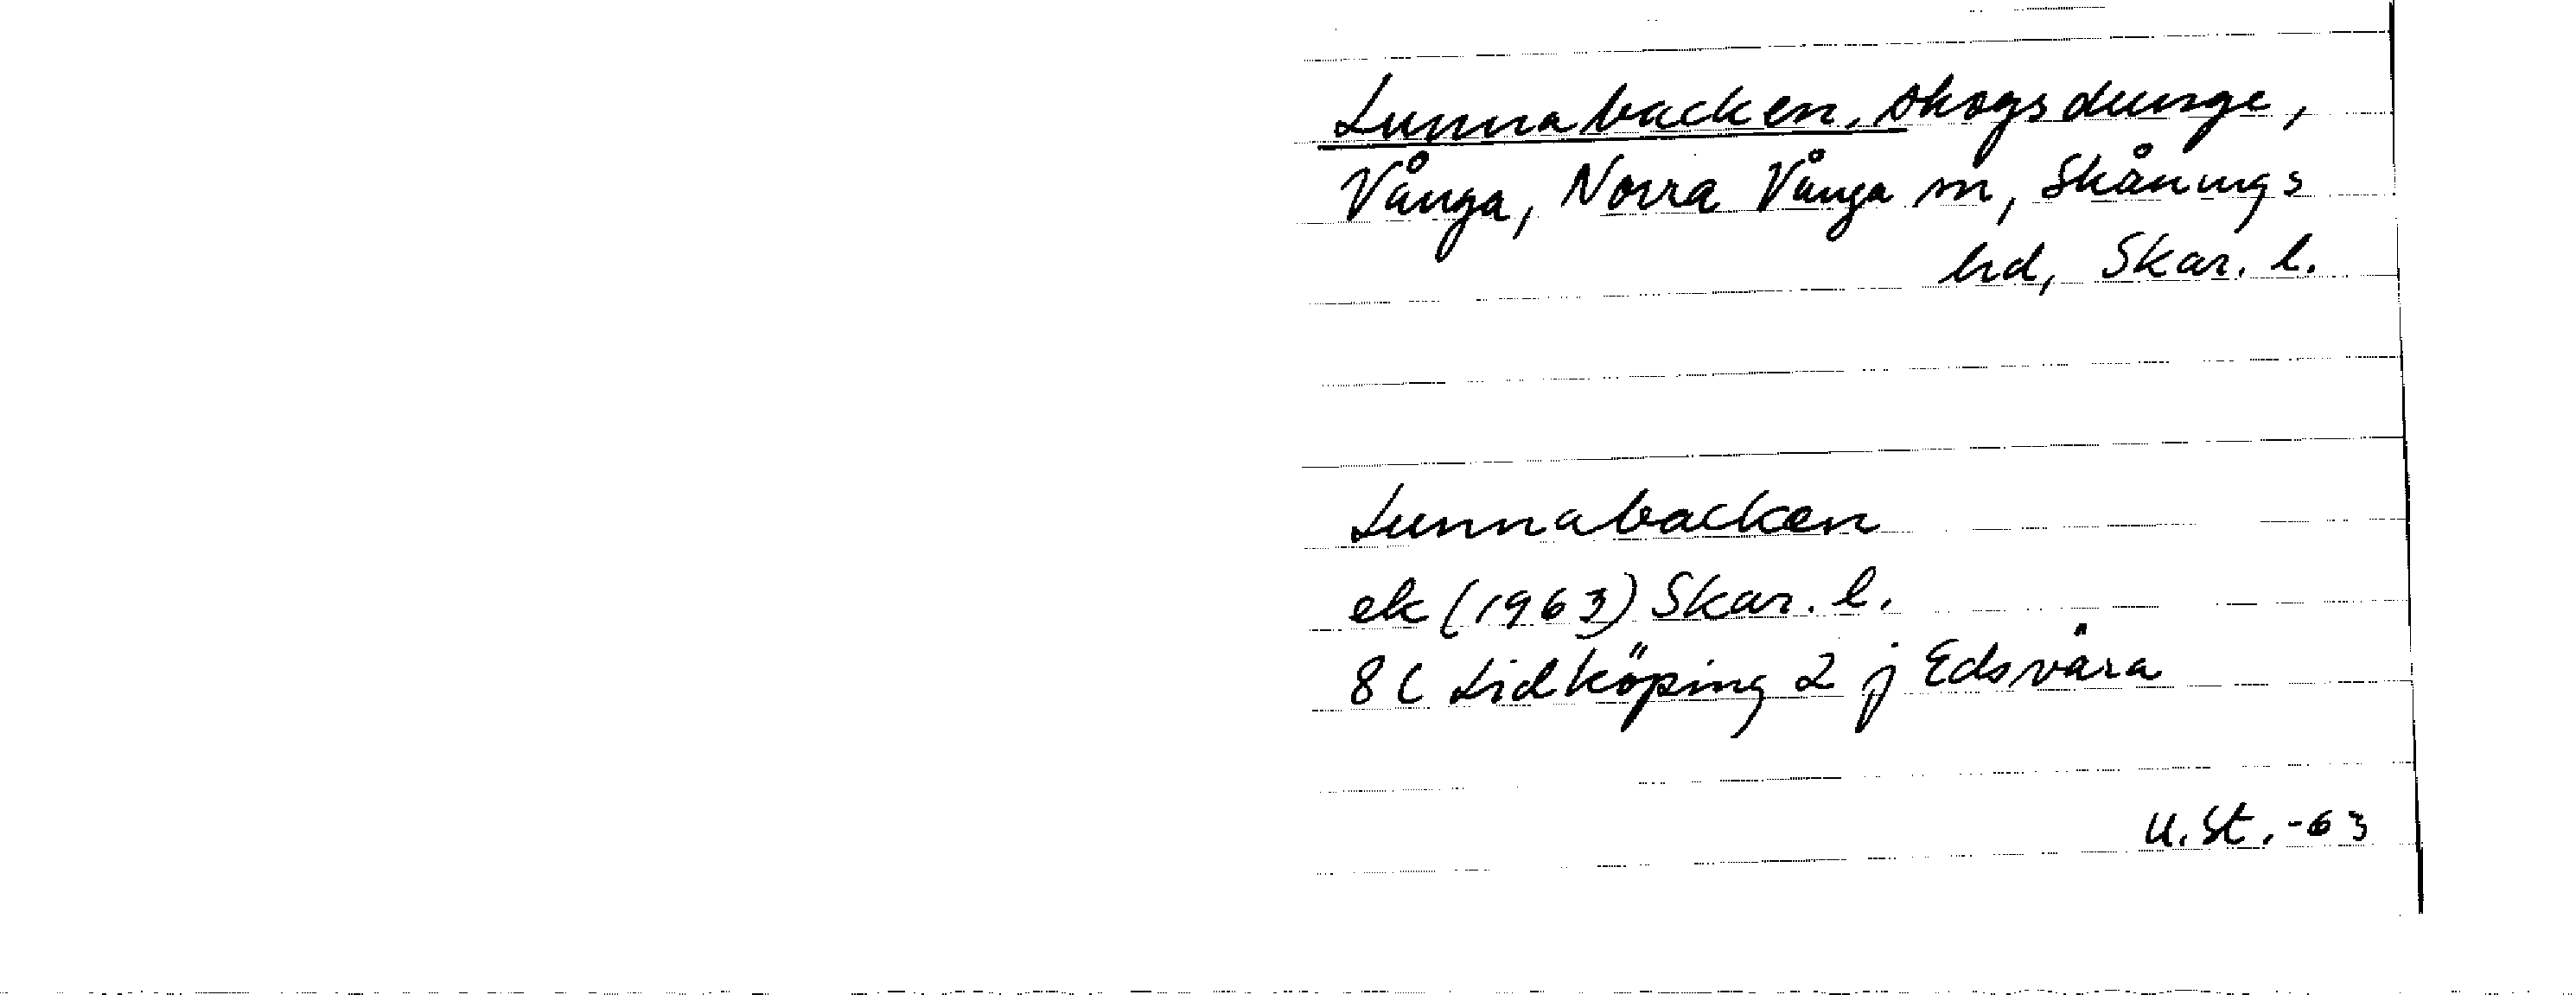 Lunnabacken, skogsdunge,
Vånga, Norra Vånga sn, Skånings
hd, Skar. l.
Lunnabacken
ek (1963) Skar. l.
8 C Lidköping 2 j Edsvära
U.St.-63